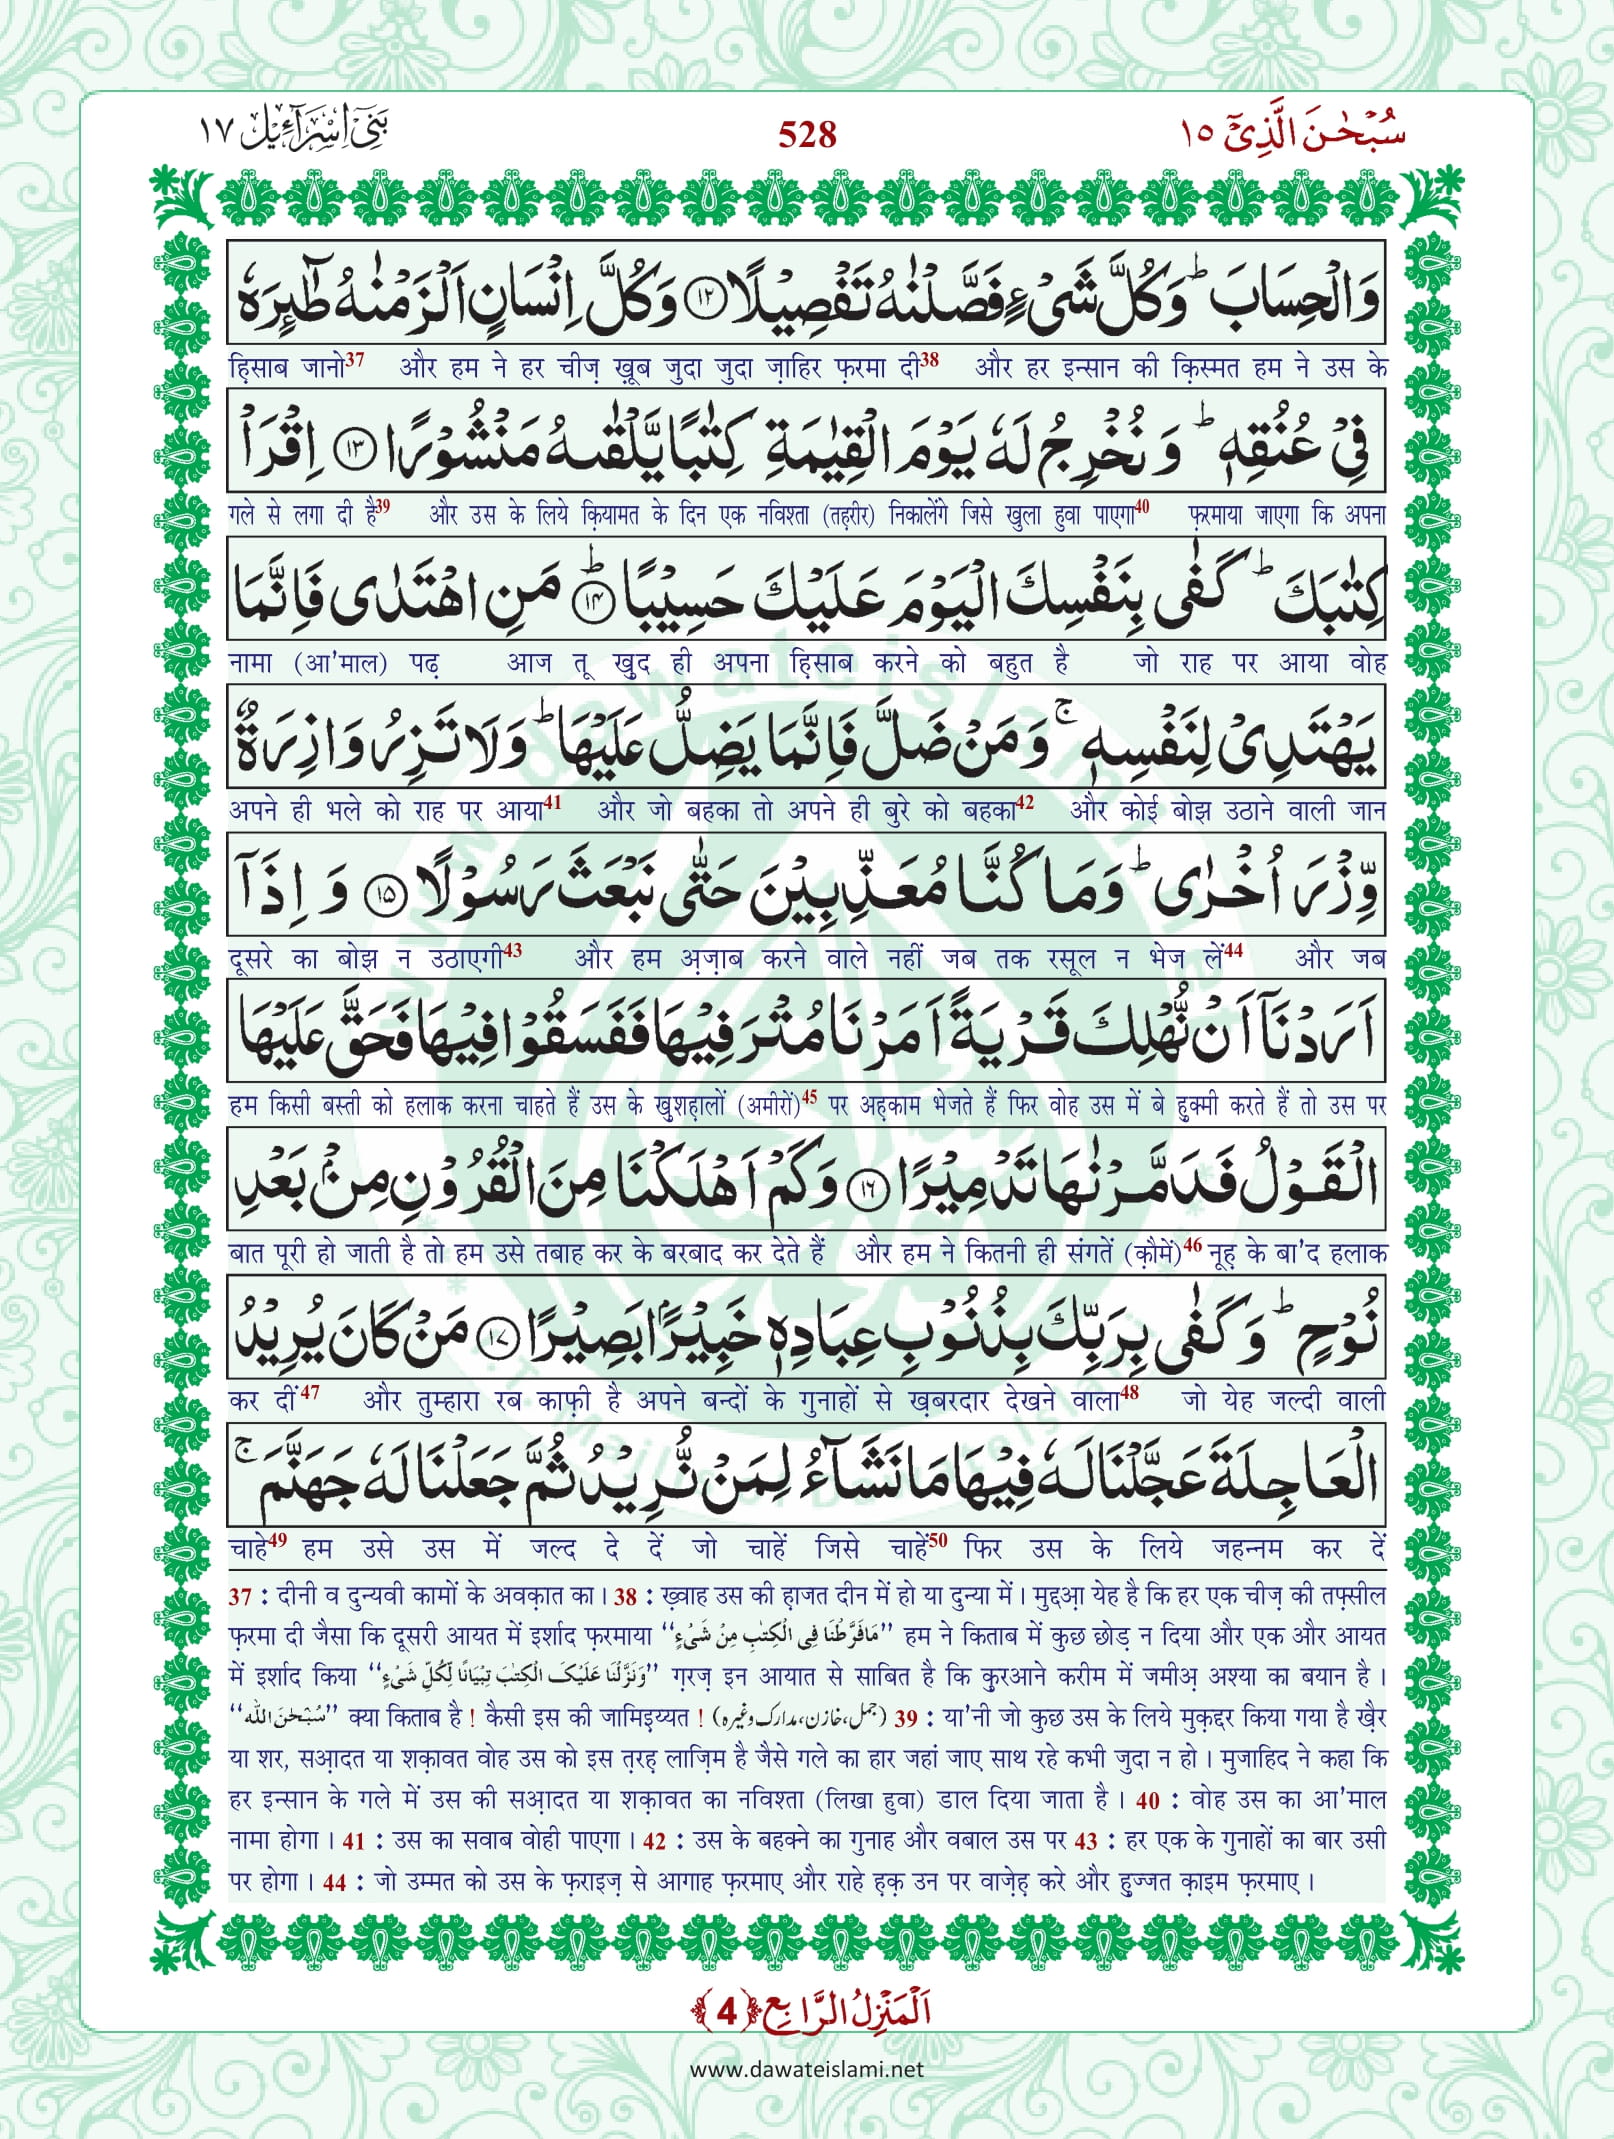 سُبۡحٰنَ الَّذِیۡۤ ١٥
528
بَنِیۡۤ اِسۡرَآءِیۡل ١٧
وَالۡحِسَابَ ؕ وَكُلَّ شَیۡءٍ فَصَّلۡنٰهُ تَفۡصِیۡلًا ﴿١٢﴾ وَكُلَّ اِنۡسَانٍ اَلۡزَمۡنٰهُ طٰٓئِرَهٗ
हि़साब जानो37 और हम ने हर चीज़ ख़ूब जुदा जुदा ज़ाहिर फ़रमा दी38 और हर इन्सान की क़िस्मत हम ने उस के
فِیۡ عُنُقِهٖ ؕ وَ نُخۡرِجُ لَهٗ یَوۡمَ الۡقِیٰمَةِ كِتٰبًا یَّلۡقٰىهُ مَنۡشُوۡرًا ﴿١٣﴾ اِقۡرَاۡ
गले से लगा दी है39 और उस के लिये क़ियामत के दिन एक नविश्ता (तह़रीर) निकालेंगे जिसे खुला हुवा पाएगा40 फ़रमाया जाएगा कि अपना
كِتٰبَكَ ؕ كَفٰی بِنَفۡسِكَ الۡیَوۡمَ عَلَیۡكَ حَسِیۡبًا ﴿١٤﴾ؕ مَنِ اهۡتَدٰی فَاِنَّمَا
नामा (आ'माल) पढ़ आज तू ख़ुद ही अपना हि़साब करने को बहुत है जो राह पर आया वोह
یَهۡتَدِیۡ لِنَفۡسِهٖ ۚ وَمَنۡ ضَلَّ فَاِنَّمَا یَضِلُّ عَلَیۡهَا ؕ وَلَا تَزِرُ وَازِرَةٌ
अपने ही भले को राह पर आया41 और जो बहका तो अपने ही बुरे को बहका42 और कोई बोझ उठाने वाली जान
وِّزۡرَ اُخۡرٰی ؕ وَمَا كُنَّا مُعَذِّبِیۡنَ حَتّٰی نَبۡعَثَ رَسُوۡلًا ﴿١٥﴾ وَ اِذَاۤ
दूसरे का बोझ न उठाएगी43 और हम अ़ज़ाब करने वाले नहीं जब तक रसूल न भेज लें44 और जब
اَرَدۡنَاۤ اَنۡ نُّهۡلِكَ قَرۡیَةً اَمَرۡنَا مُتۡرَفِیۡهَا فَفَسَقُوۡا فِیۡهَا فَحَقَّ عَلَیۡهَا
हम किसी बस्ती को हलाक करना चाहते हैं उस के ख़ुशह़ालों (अमीरों)45 पर अह़काम भेजते हैं फिर वोह उस में बे हु़क्मी करते हैं तो उस पर
الۡقَوۡلُ فَدَمَّرۡنٰهَا تَدۡمِیۡرًا ﴿١٦﴾ وَكَمۡ اَهۡلَكۡنَا مِنَ الۡقُرُوۡنِ مِنۡۢ بَعۡدِ
बात पूरी हो जाती है तो हम उसे तबाह कर के बरबाद कर देते हैं और हम ने कितनी ही संगतें (क़ौमें)46 नूह़ के बा'द हलाक
نُوۡحٍ ؕ وَكَفٰی بِرَبِّكَ بِذُنُوۡبِ عِبَادِهٖ خَبِیۡرًۢا بَصِیۡرًا ﴿١٧﴾ مَنۡ كَانَ یُرِیۡدُ
कर दीं47 और तुम्हारा रब काफ़ी है अपने बन्दों के गुनाहों से ख़बरदार देखने वाला48 जो येह जल्दी वाली
الۡعَاجِلَةَ عَجَّلۡنَا لَهٗ فِیۡهَا مَا نَشَآءُ لِمَنۡ نُّرِیۡدُ ثُمَّ جَعَلۡنَا لَهٗ جَهَنَّمَ ۚ
चाहे49 हम उसे उस में जल्द दे दें जो चाहें जिसे चाहें50 फिर उस के लिये जहन्नम कर दें
37 : दीनी व दुन्यवी कामों के अवक़ात का । 38 : ख़्वाह उस की हा़जत दीन में हो या दुन्या में । मुद्दआ़ येह है कि हर एक चीज़ की तफ़्सील
फ़रमा दी जैसा कि दूसरी आयत में इर्शाद फ़रमाया "مَا فَرَّطْنَا فِی الْكِتٰبِ مِنْ شَیْءٍ" हम ने किताब में कुछ छोड़ न दिया और एक और आयत
में इर्शाद किया "وَنَزَّلْنَا عَلَیْکَ الْكِتٰبَ تِبْیَانًا لِّكُلِّ شَیْءٍ" ग़रज़ इन आयात से साबित है कि क़ुरआने करीम में जमीअ़ अश्या का बयान है ।
"سُبْحٰنَ اللّٰه" क्या किताब है ! कैसी इस की जामिइ़य्यत ! (جمل، خازن، مدارک وغیرہ) 39 : या'नी जो कुछ उस के लिये मुक़द्दर किया गया है ख़ैर
या शर, सआ़दत या शक़ावत वोह उस को इस त़रह़ लाज़िम है जैसे गले का हार जहां जाए साथ रहे कभी जुदा न हो । मुजाहिद ने कहा कि
हर इन्सान के गले में उस की सआ़दत या शक़ावत का नविश्ता (लिखा हुवा) डाल दिया जाता है । 40 : वोह उस का आ'माल
नामा होगा । 41 : उस का सवाब वोही पाएगा । 42 : उस के बहक्ने का गुनाह और वबाल उस पर 43 : हर एक के गुनाहों का बार उसी
पर होगा । 44 : जो उम्मत को उस के फ़राइज़ से आगाह फ़रमाए और राहे ह़क़ उन पर वाज़ेह़ करे और हु़ज्जत क़ाइम फ़रमाए ।
اَلۡمَنۡزِلُ الرَّابِع ﴿4﴾
www.dawateislami.net